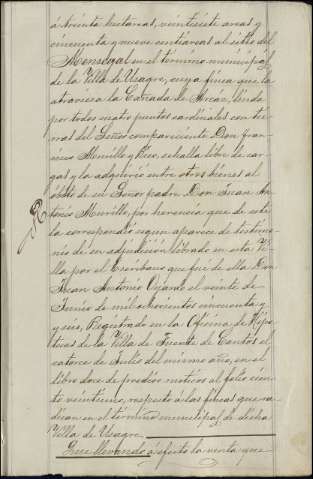 á treinta hectáreas, veintisiete areas y
cincuenta y nueve centiareas al sitio del
Monsegal en el término municipal
de la Villa de Usagre, cuya finca que la
atraviesa la Cañada de Arcán, linda
por todos cuatro puntos cardinales con tie-
rras del Señor compareciente Don Fran-
cisco Murillo y Rico, se halla libre de car-
gas y la adquirió entre otros bienes al
óbito de su Señor padre Don Juan An-
tonio Murillo, por herencia que de este
le correspondió segun aparece de testimo-
nio de su adjudicion librado en esta Vi-
lla por el Escribano que fué de ella Don
Juan Antonio el veinte de
Junio de mil ochocientos cincuenta y
y seis, Registrado en la Oficina de Hipo-
tecas de la Villa de Fuente de Cantos el
catorce de Julio del mismo año, en el
libro doce de predios rusticos al folio cien-
to veintiuno, respecto á las fincas que ra-
dican en el término municipal de dicha
Villa de Usagre.
Que llevando á efecto la venta que